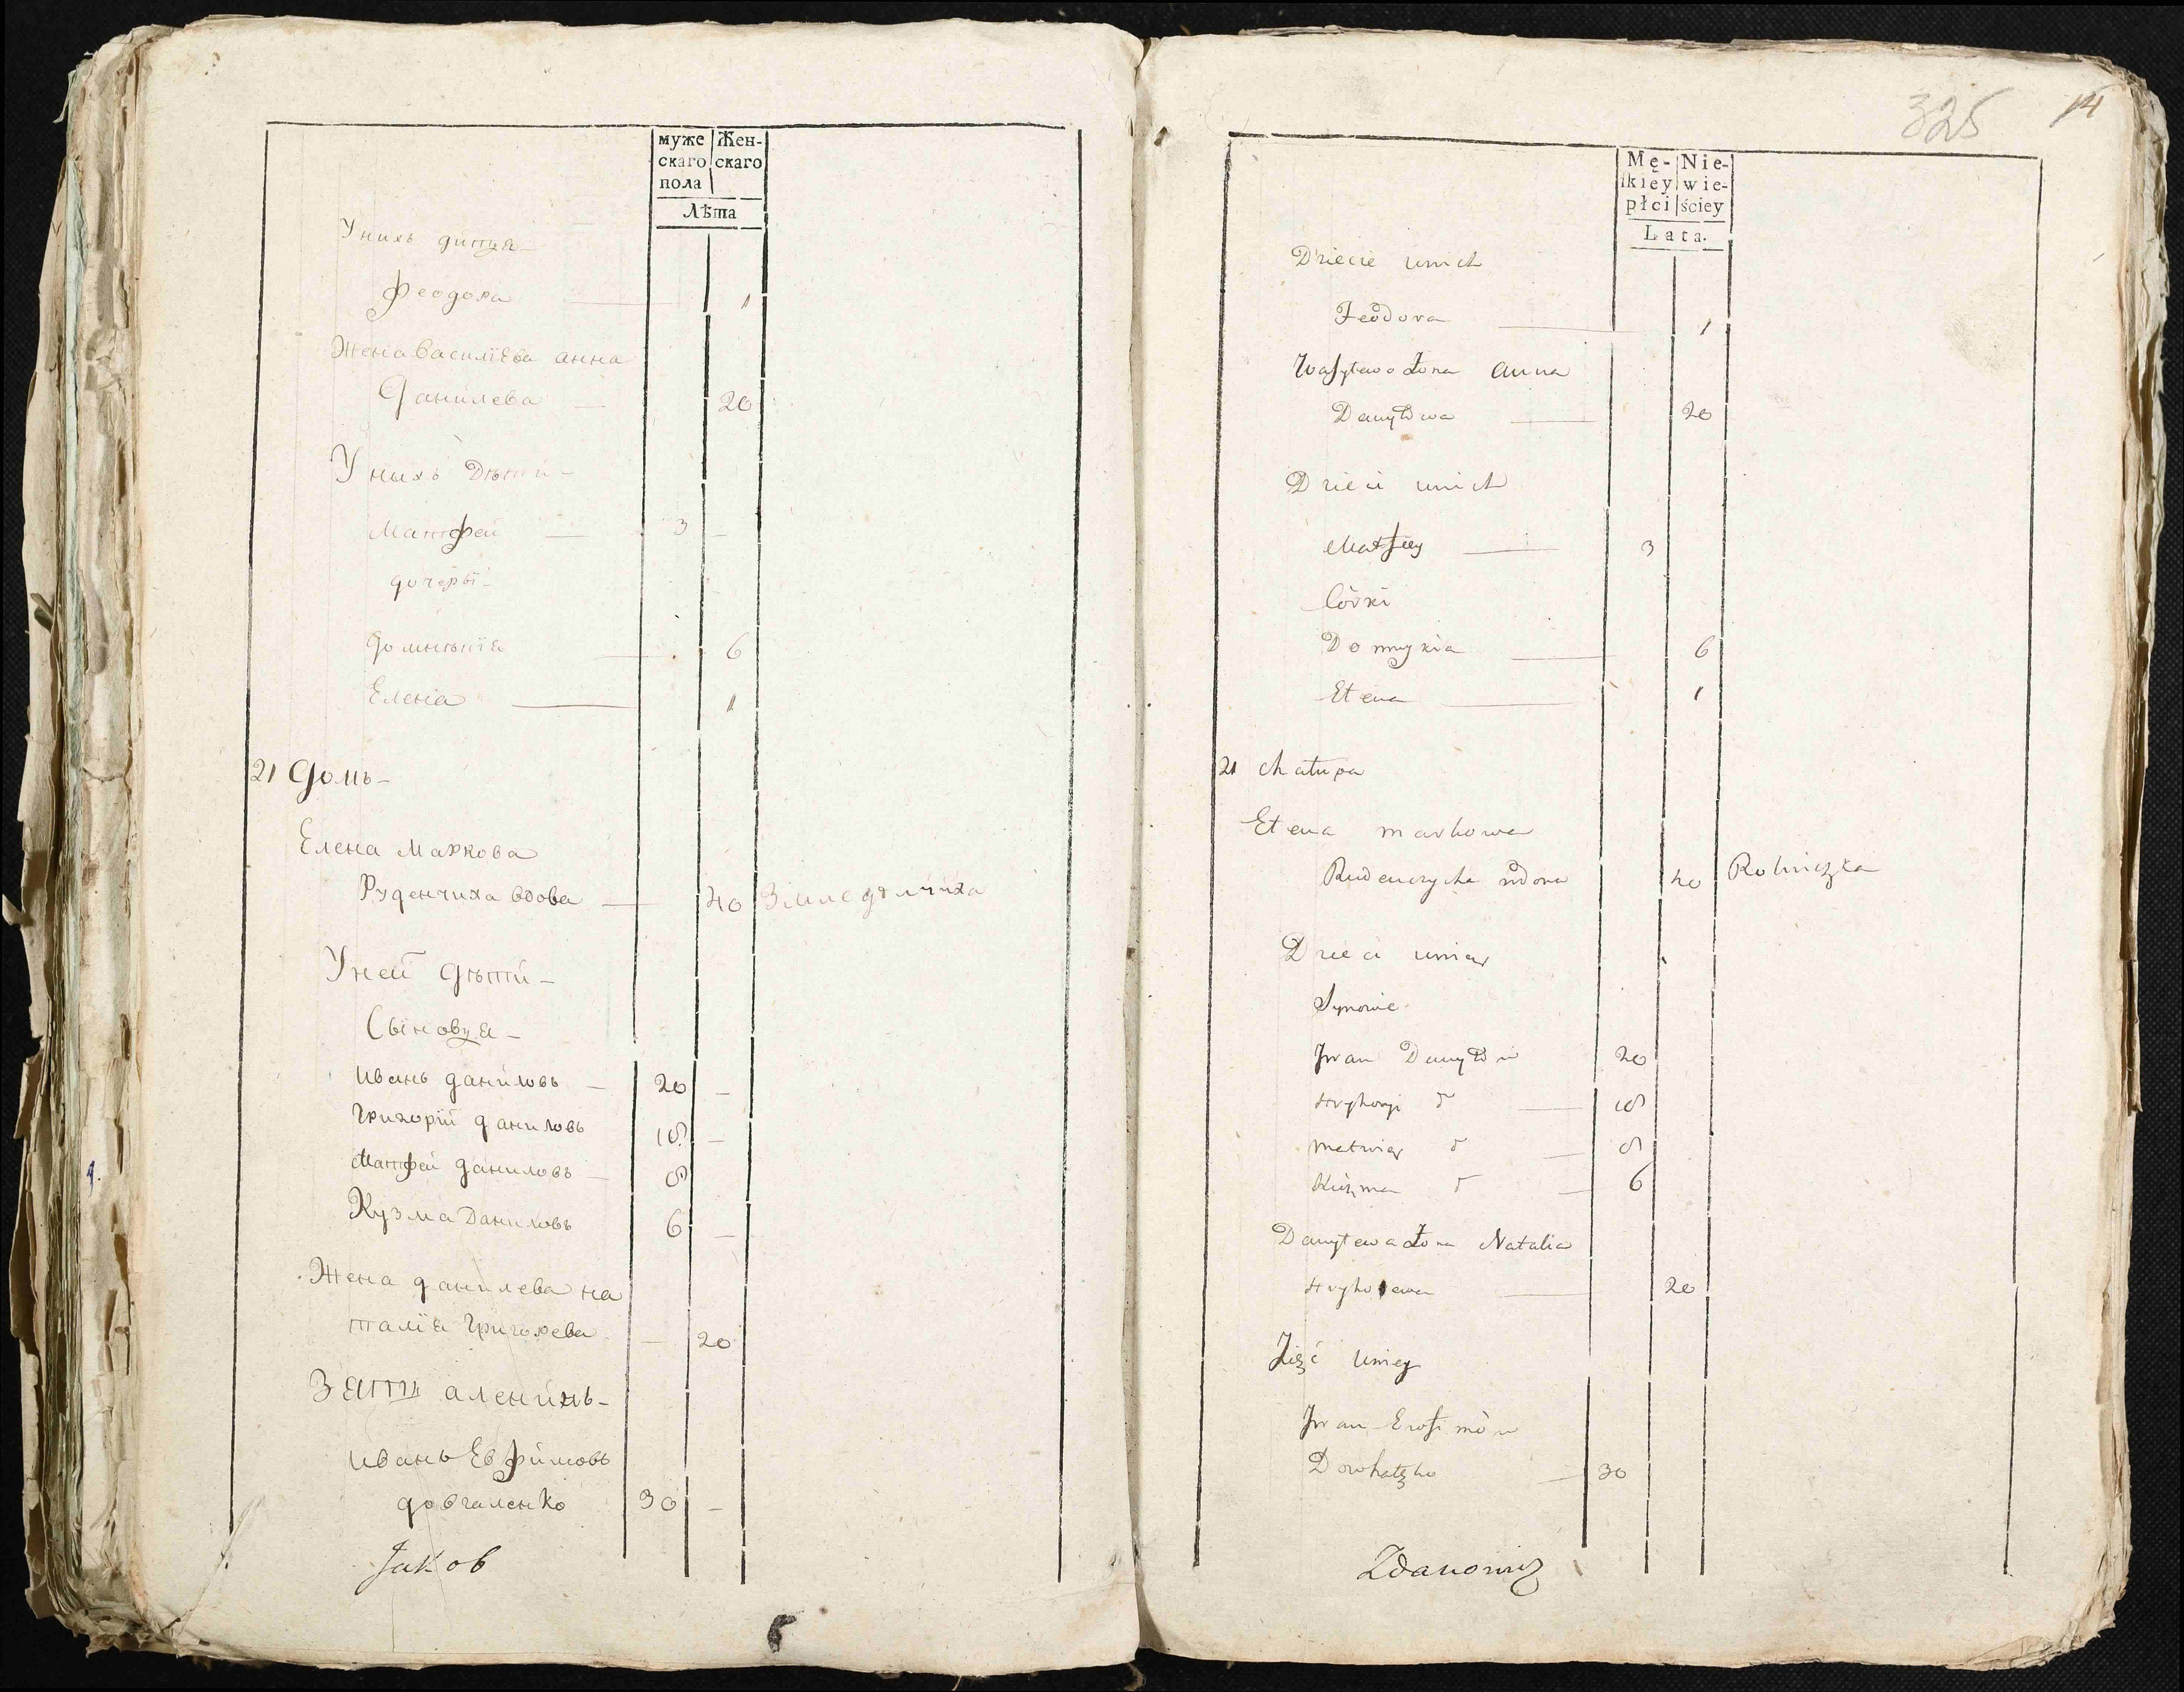 муже
скаго
пола
Жен-
скаго
Лѣта
Унихъ дитя
Феодора 1
Жена василїева анна
Данилева 20
Уныхъ Дѣти
Матфей 3
дочеры
домникїя 6
Елена 1
21 Домъ
Елена Маркова
Руденчиха вдова 40 Земледѣлчиха
Уней дѣти
Сыновя
Иванъ даниловъ 20
Григорїй даниловъ 18
Матфей даниловъ 8
Кузма Даниловъ 6
Жена данилева на
талїя Григорева 20
Зять аленинъ
Иванъ Евфимовъ
довгаленко 30
Jakob
325 14
Mę-
kiey
płci
Nie-
wie-
ściey
Lata.
Dziecie unich
Feodora 1
Wasylewa Żona Anna
Danyłowa 20
Dzieci unich
Matfiey 3
Córki
Domnykia 6
Elena 1
21 Chałupa
Elena Markowa
Rudenczycha wdowa 40 Rolniczka
Dzieci uniey
Synowie
Jwan Danyłow 20
Hryhoryi d 18
Metwiey d 8
Kuzma d 6
Danylewa Żona Natalia
Hryhorewa 20
Zięć Uniey
Jwan Ewfimów
Dowhalenko 30
Zdanowicz